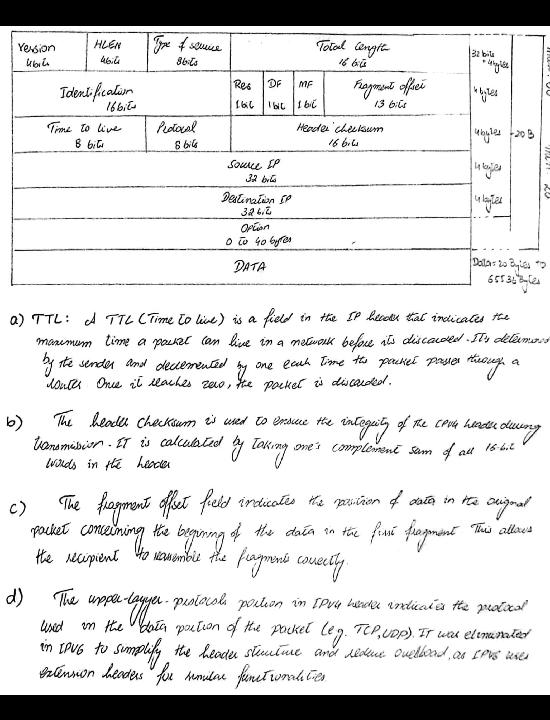 Version HLEN Type of service Total length 32 bits
4bits 4bits 8bits 16 bits = 4bytes
Identification Res DF MF Fragment offset 4 bytes
16bits 1bit 1bit 1bit 13 bits
Time to live Protocol Header checksum 4bytes 20 B
8 bits 8 bits 16 bits
Source IP 4 bytes
32 bits
Destination IP 4 bytes
32 bits
Option
0 to 40 bytes
DATA Data = 20 Bytes to
65536 Bytes
a) TTL: A TTL (Time to live) is a field in the IP header that indicates the
maximum time a packet can live in a network before its discarded. It's determined
by the sender and decremented by one each time the packet passes through a
router Once it reaches zero, the packet is discarded.
b) The header checksum is used to ensure the integrity of the IPv4 header during
transmission. IT is calculated by taking one's complement sum of all 16-bit
words in the header
c) The fragment offset field indicates the position of data in the original
packet concerning the beginning of the data in the first fragment This allows
the recipient to reassemble the fragments correctly.
d) The upper-layyer-protocols portion in IPv4 header indicates the protocol
used in the data portion of the packet (e.g. TCP, UDP). IT was eliminated
in IPV6 to simplify the header structure and reduce overload, as IPV6 uses
extension headers for similar functionalities